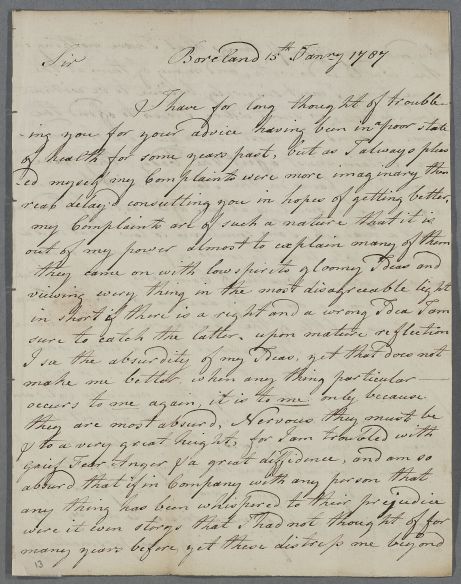 Boreland 15th Janry 1787
Sir
I have for long thought of trouble-
ing you for your advice having been in a poor state
of health for some years past, but as I always pleas
ed myself my Complaints were more imaginary then
real delay'd consulting you in hopes of getting better,
my Complaints are of such a nature that it is
out of my power almost to explain many of them
they came on with low spirits gloomy Ideas and
viewing very thing in the most disagreeable light
in short if there is a right and a wrong Idea I am
sure to catch the latter. upon mature reflection
I see the absurdity of my Ideas, yet that does not
make me better, when any thing particular
occurs to me again, it is to me only because
they are most absurd, Nervous they must be
& to a very great height, for I am troubled with
Fear Anger & a great diffidence, and am so
absurd that if in Company with any person that
any thing has been whispered to their prejudice
were it even storys that I had not thought of for
many years before, yet these distress me beyond
13